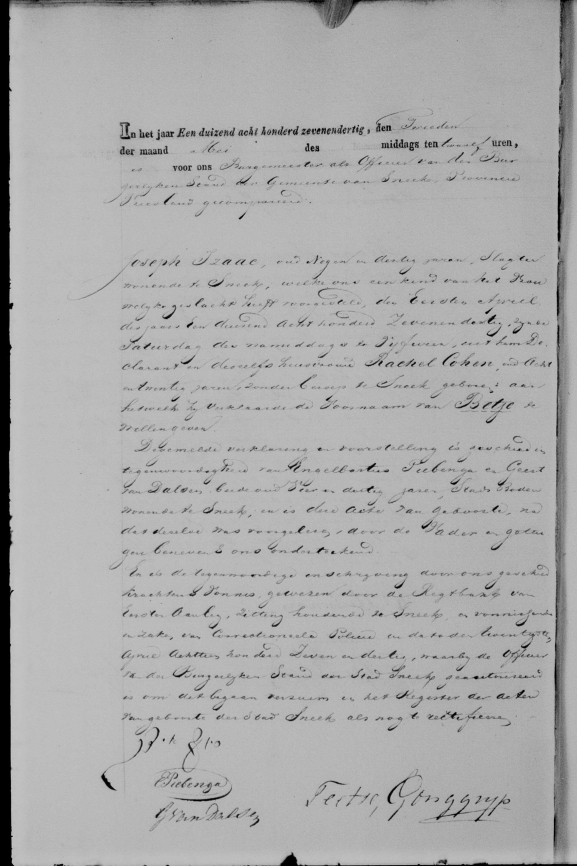 In het jaar Een duizend acht honderd zevenendertig, den Tweeden
der maand Mei des middags ten twaalf uren,
is voor ons Burgemeester als Officier van den Bur
gerlyken Stand der Gemeente van Sneek, Provincie
Friesland gecompareerd.
Joseph Izaac, oud Negen en dertig jaren, Slagter
wonende te Sneek, welke ons een kind van het Vrou
welyke geslacht heeft voorgesteld, den Eersten April
des jaars Een duizend Acht honderd Zevenendertig, zynde
Saturdag des namiddags te Vyf uren, uit hem De
clarant en deszelfs huisvrouw Rachel Cohen, oud Acht
en twintig jaren, zonder beroep te Sneek geboren; aan
hetwelk hy verklaarde de Voornaam van Betje te
willen geven
Dezemelde verklaring en voorstelling is geschied in
tegenwoordigheid van Engelbertus Piebenga en Geert
van Dalsen, beide oud Vier en dertig jaren, Stads boden
wonende te Sneek, en is deze Acte van Geboorte, na
dat dezelve was voorgelezen, door de Vader en getui
gen benevens ons ondertekend.
En is de tegenwoordige inschryving door ons geschied
krachtens Vonnis, gewezen door de Regtbank van
Eersten Aanleg, zitting houdende te Sneek, en vonnissende
in zake van Correctioneele Policie en dato den twintigsten
April Achttien honderd Zeven en dertig, waarby de Officier
van den Burgerlyken Stand der Stad Sneek geautoriseerd
is om dit begaan verzuim in het Register der acten
van geboorte der Stad Sneek als nog te rectificeren.
Piebenga
G van Dalsen
Teetse Gonggryp